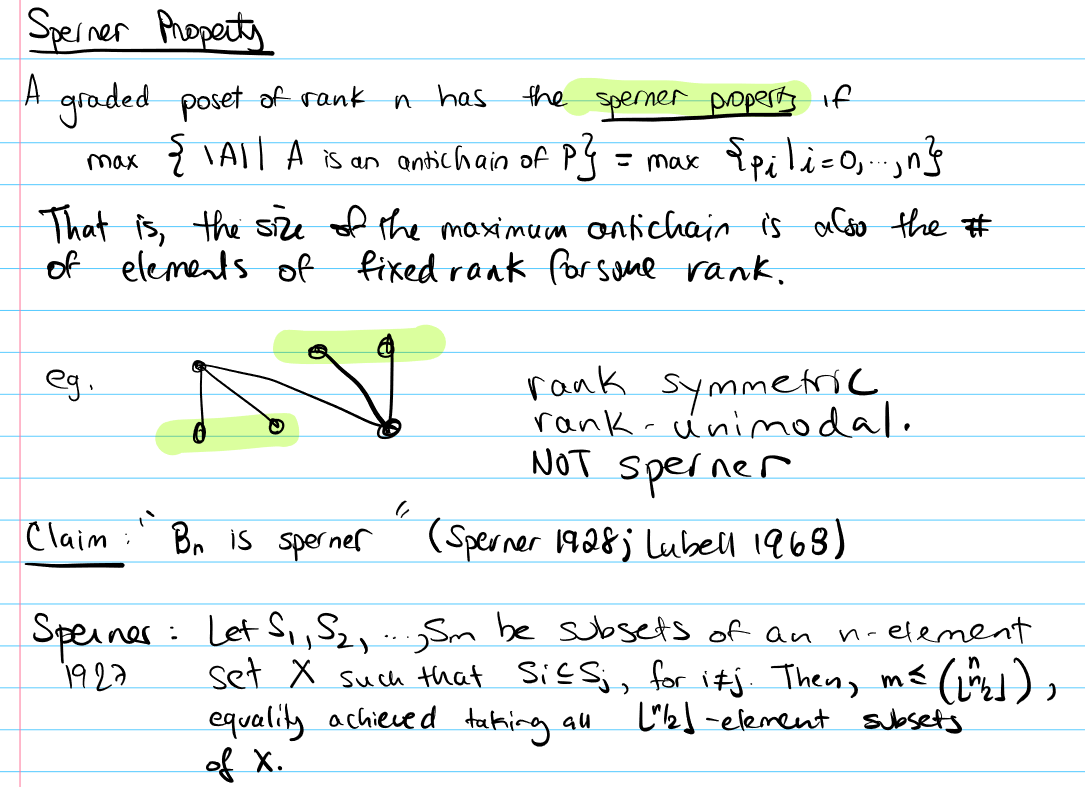 Sperner Property
A graded poset of rank n has the sperner property if
max { |A| | A is an antichain of P} = max {pi | i=0,...,n}
That is, the size of the maximum antichain is also the #
of elements of fixed rank for some rank.
eg.
rank symmetric
rank-unimodal.
NOT sperner
Claim: "Bn is sperner" (Sperner 1928; Lubell 1968)
Sperner: Let S1, S2, ..., Sm be subsets of an n-element
1927 set X such that Si ⊆ Sj, for i≠j. Then, m ≤ (n ⌊n/2⌋),
equality achieved taking all ⌊n/2⌋-element subsets
of X.